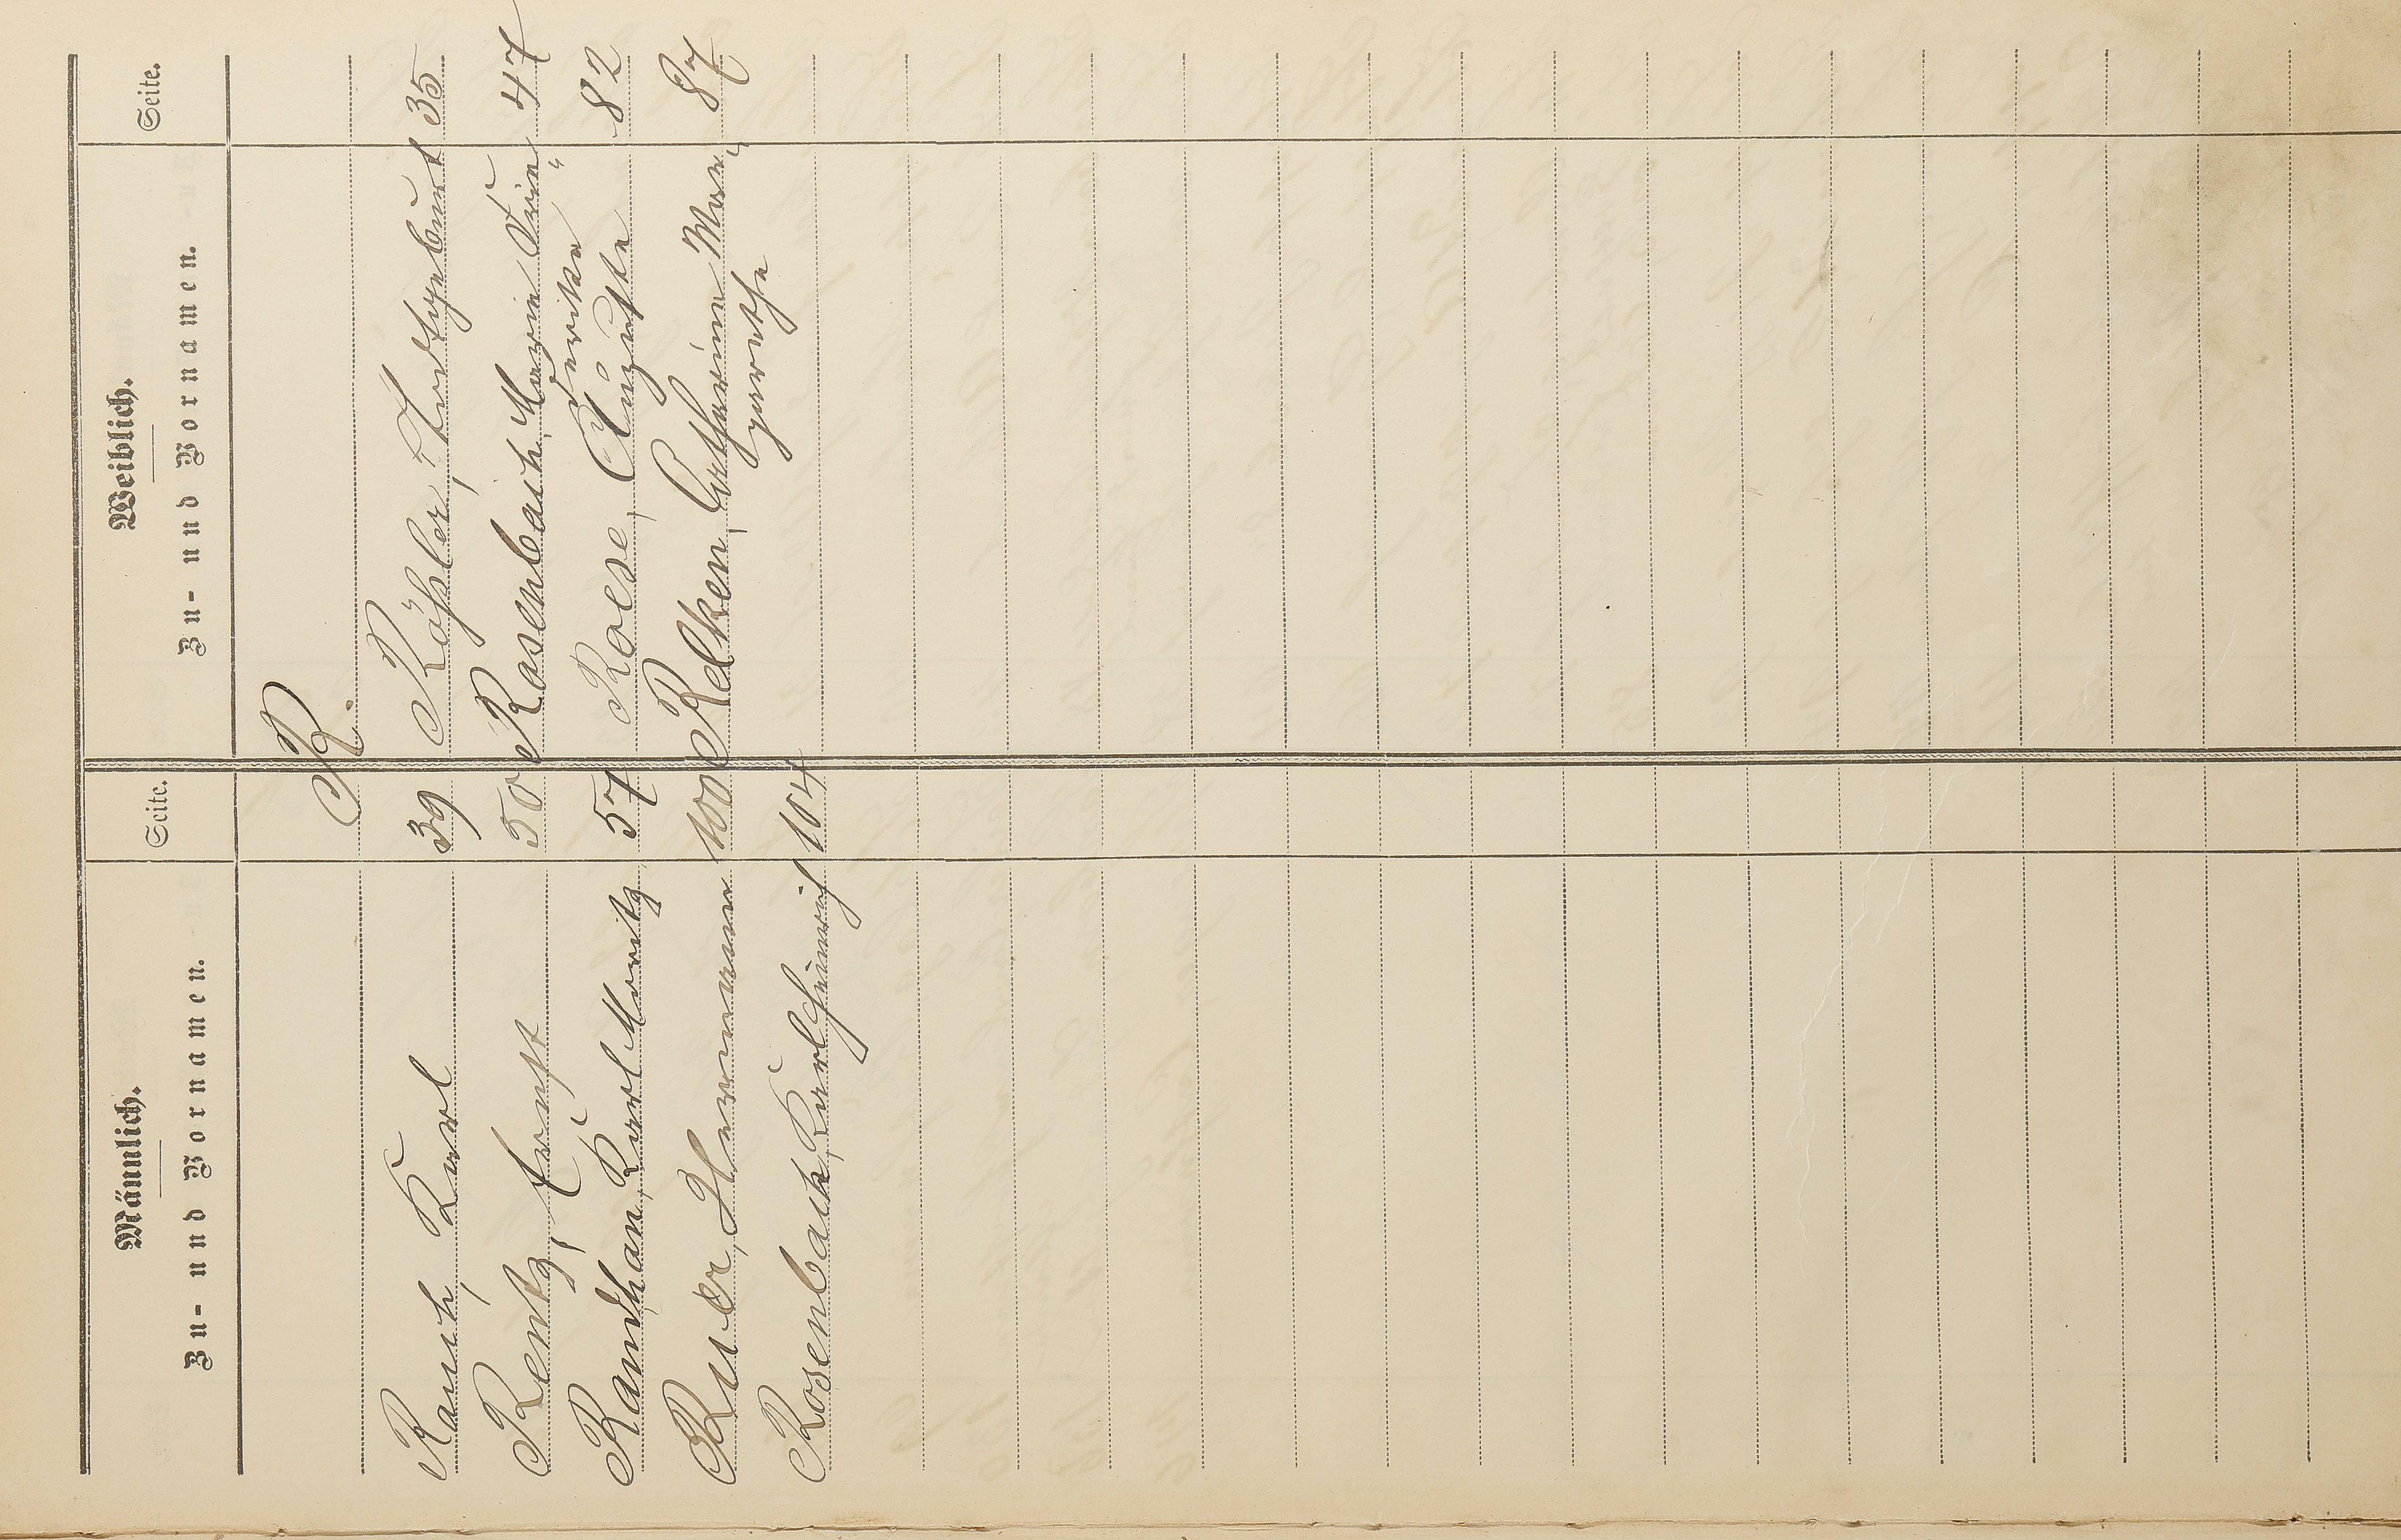 Männlich. Weiblich.
Zu- und Vornamen. Seite. Zu- und Vornamen. Seite.
R.
Rauch, Karl 39 Röhler, Todtgeburt 35
Rentz, Ernst 50 Rosenbach, Marie Frie 47
"derike
Randhan, Karl Moritz 57 Roese, Auguste 82
Ruer, Hermann 100 Relken, Catharine Mar- 87
garethe
Rosenbach, Karl Heinrich 104